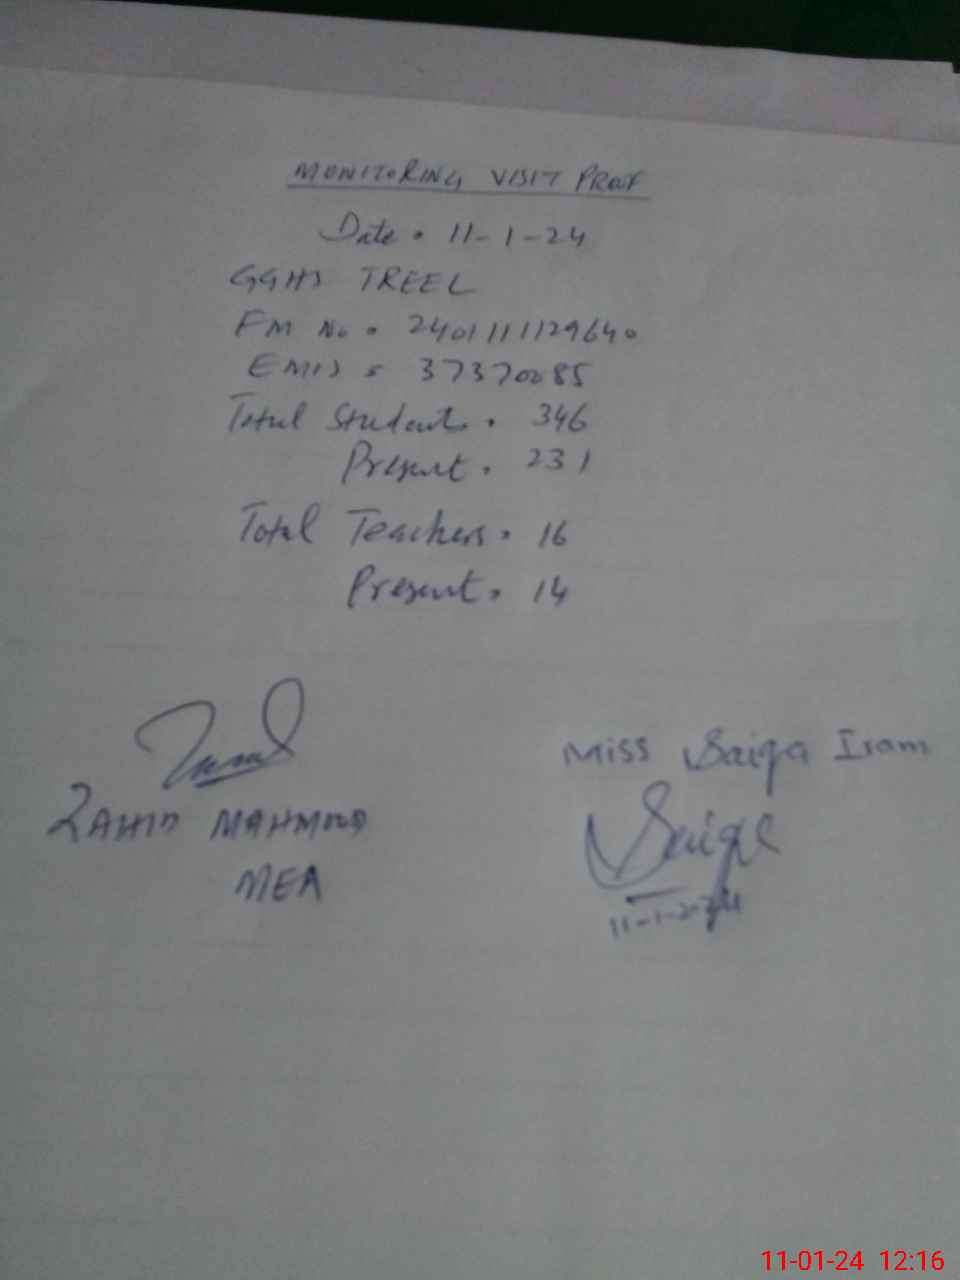 MONITORING VISIT PROOF
Date = 11-1-24
GGHS TREEL
FM No = 2401111129640
EMIS = 37370085
Total Students = 346
Present = 231
Total Teachers = 16
Present = 14
ZAHID MAHMOOD
MEA
Miss Saiqa Iram
Saiqa
11-1-2024
11-01-24 12:16